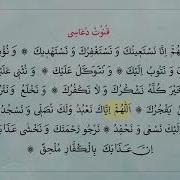 قنوت دعاسی
اللهم إنا نستعينك ونستغفرك ونستهديك ونؤ
ونتوب إليك ونتوكل عليك ونثني عليك
خير كله نشكرك ولا نكفرك ونخلع ونتر
يفجرك اللهم إياك نعبد ولك نصلي ونسجد
إليك نسعى ونحفد نرجو رحمتك ونخشى عذا
إن عذابك بالكفار ملحق